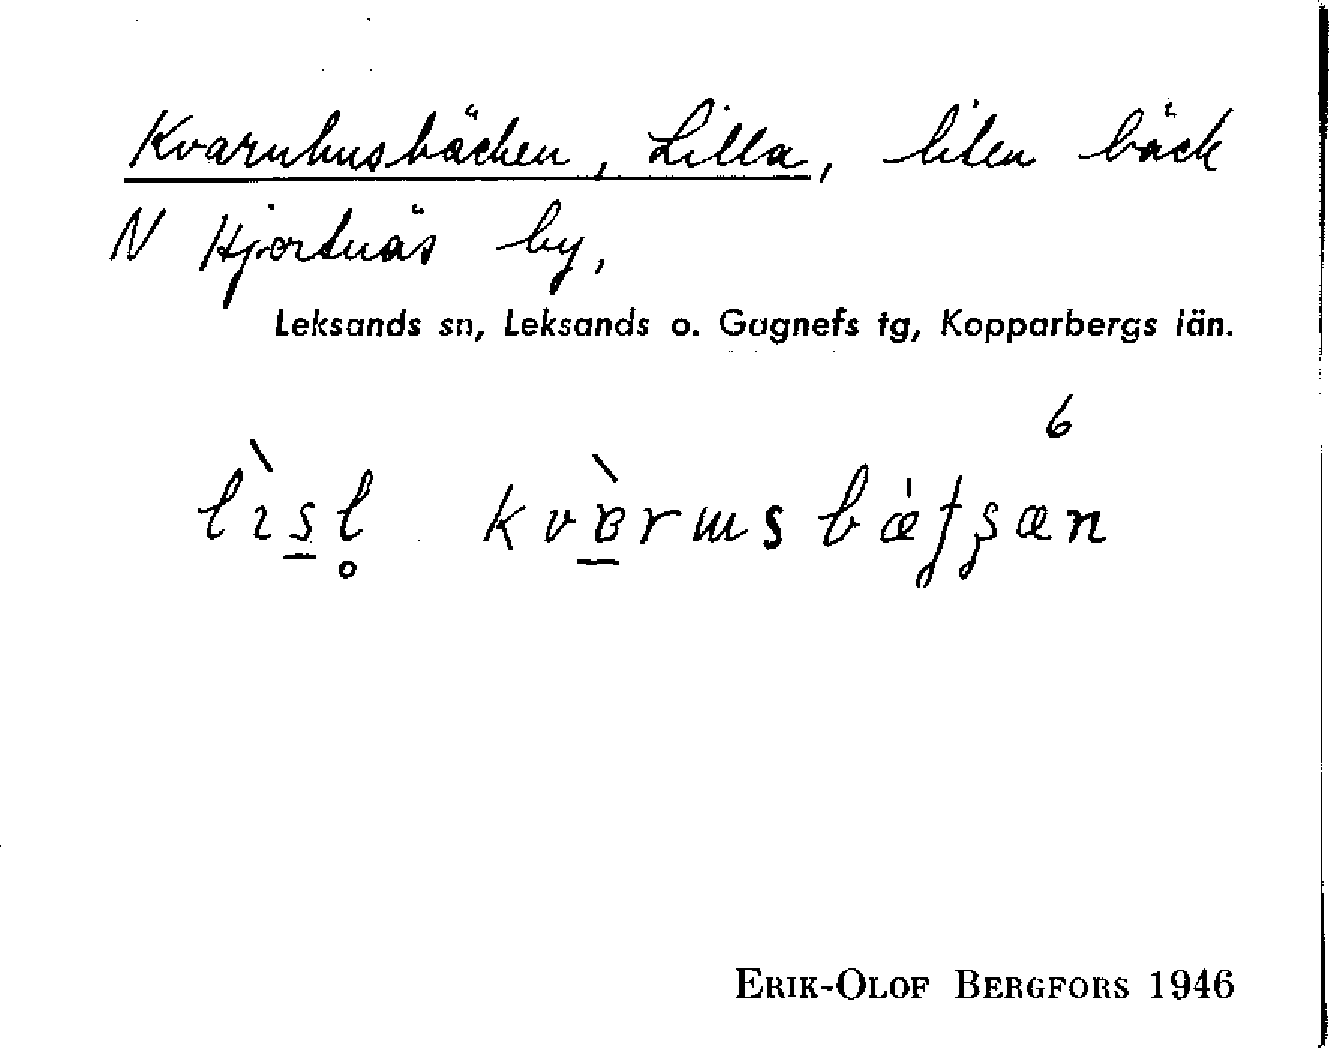 Kvarnhusbäcken, Lilla, liten bäck
N Hjortnäs by,
Leksands sn, Leksands o. Gagnefs tg, Kopparbergs län.
6
ERIK-OLOF BERGFORS 1946